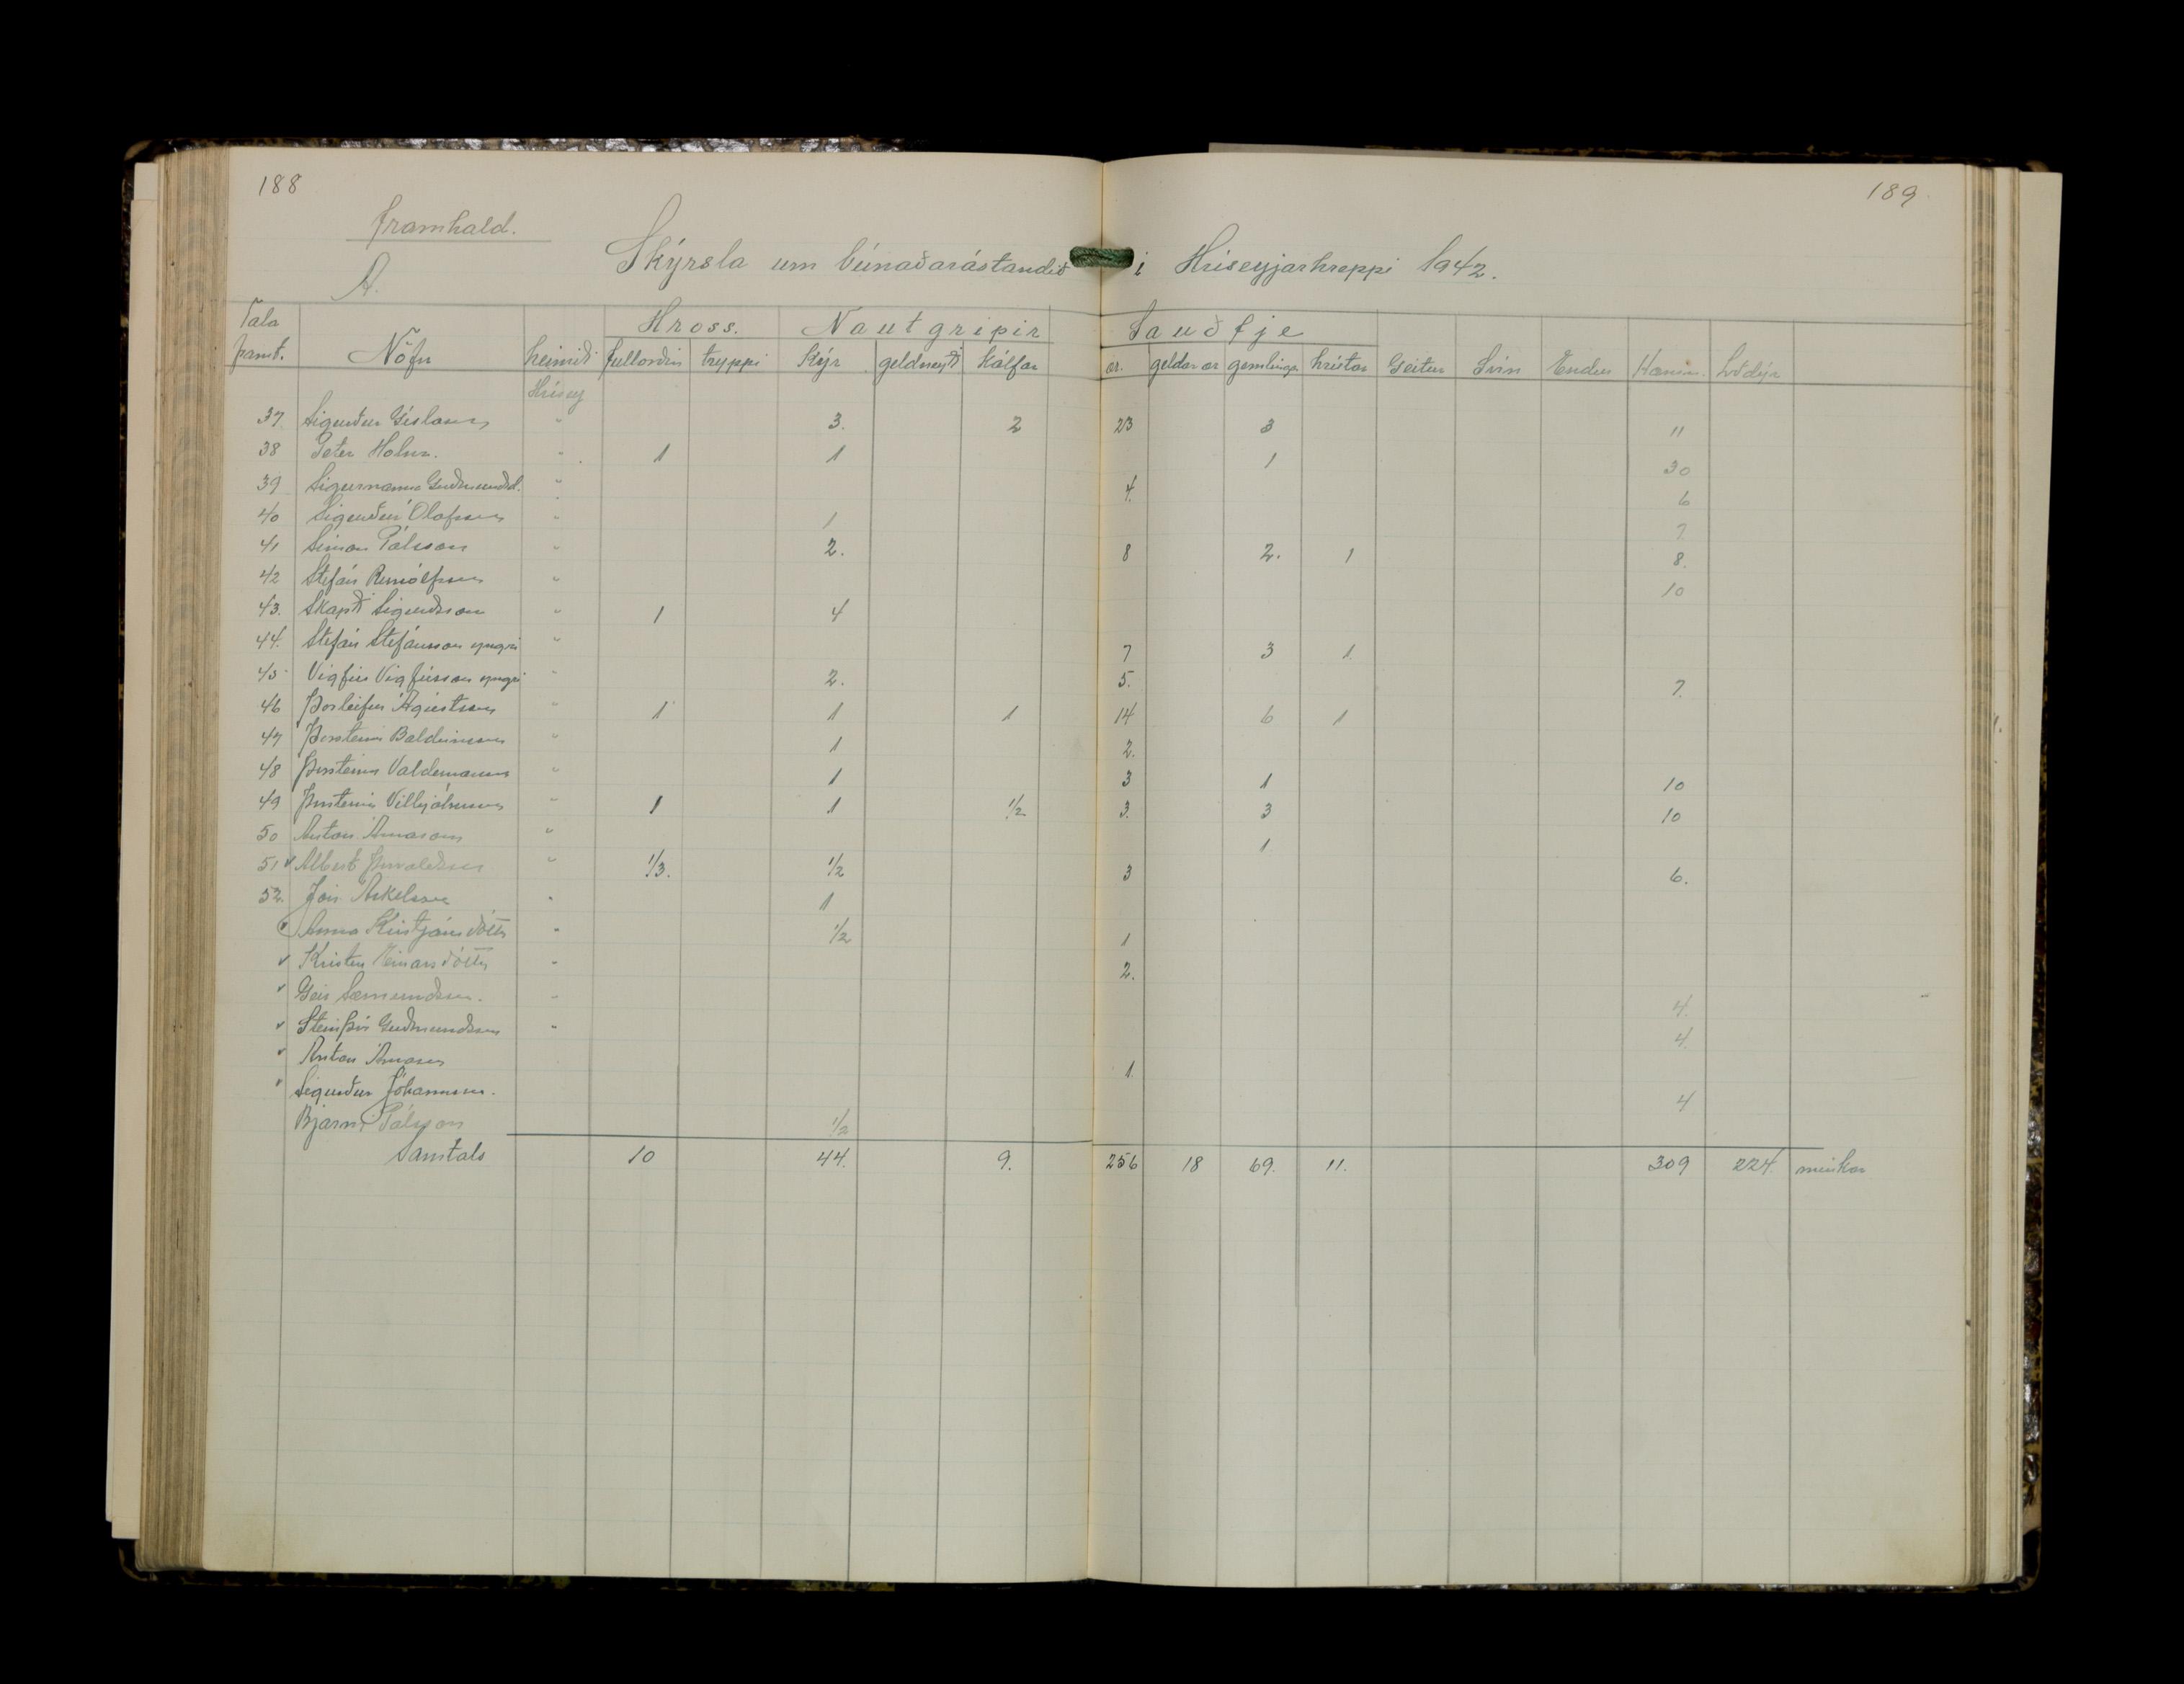 188
189
framhald.
A.
Skýrsla um búnaðarástandið í Hríseyjarhreppi 1942.
Hross. Nautgripir Sauðfje
Tala framt. Nöfn heimili fullorðin tryppi Kýr geldneyti kálfar ær. geldar ær gemlingar hrútar Geitur Svín Endur Hænsn. Loðdýr
Hrísey
37 Sigurður Gíslason " 3. 2 23 3 11
38 Peter Holm. " 1 1 1 30
39 Sigurnanna Guðmundsd. " 4. 6
40 Sigurður Ólafsson " 1 7
41 Símon Pálsson " 2. 8 2. 1 8.
42 Stefán Runólfsson " 10
43. Skapti Sigurðsson " 1 4
44. Stefán Stefánsson yngri " 7 3 1.
45 Vigfús Vigfússon yngri " 2. 5. 7.
46 Þorleifur Ágústsson " 1 1 1 14 6 1
47 Þorsteinn Baldvinsson " 1 2.
48 Þorsteinn Valdemarsson " 1 3 1 10
49 Þorsteinn Vilhjálmsson " 1 1 1/2 3. 3 10
50 Anton Árnason " 1
51 v Albert Þorvaldsson " 1/3. 1/2 3 6.
52. Jón Áskelsson " 1
v Anna Kristjánsdóttir " 1/2 1
v Kristín Einarsdóttir " 2.
v Geir Sæmundsson. " 4.
v Steinþór Guðmundsson " 4.
v Anton Árnason 1.
v Sigurður Jóhannsson. 4
Bjarni Pálsson 1/2
Samtals 10 44. 9. 256 18 69. 11. 309 224. minkar